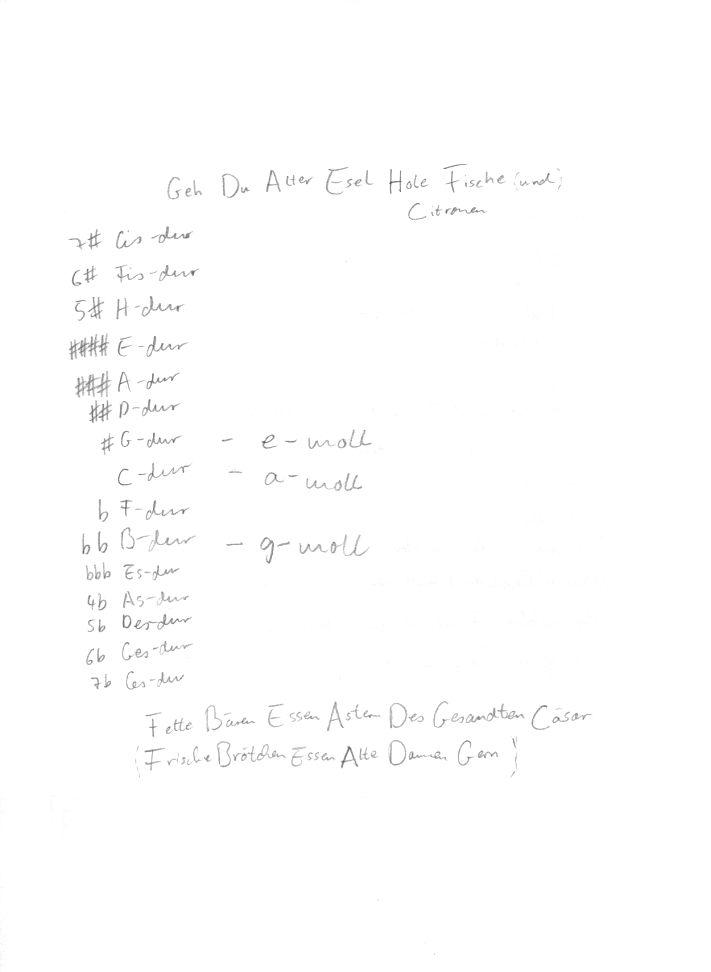 Geh Du Alter Esel Hole Fische (und)
Citronen
7# Cis-dur
6# Fis-dur
5# H-dur
#### E-dur
### A-dur
## D-dur
# G-dur - e-moll
C-dur - a-moll
b F-dur
bb B-dur - g-moll
bbb Es-dur
4b As-dur
5b Des dur
6b Ges-dur
7b Ces-dur
Fette Bären Essen Astern Des Gesandten Cäsar
(Frische Brötchen Essen Alte Damen Gern)